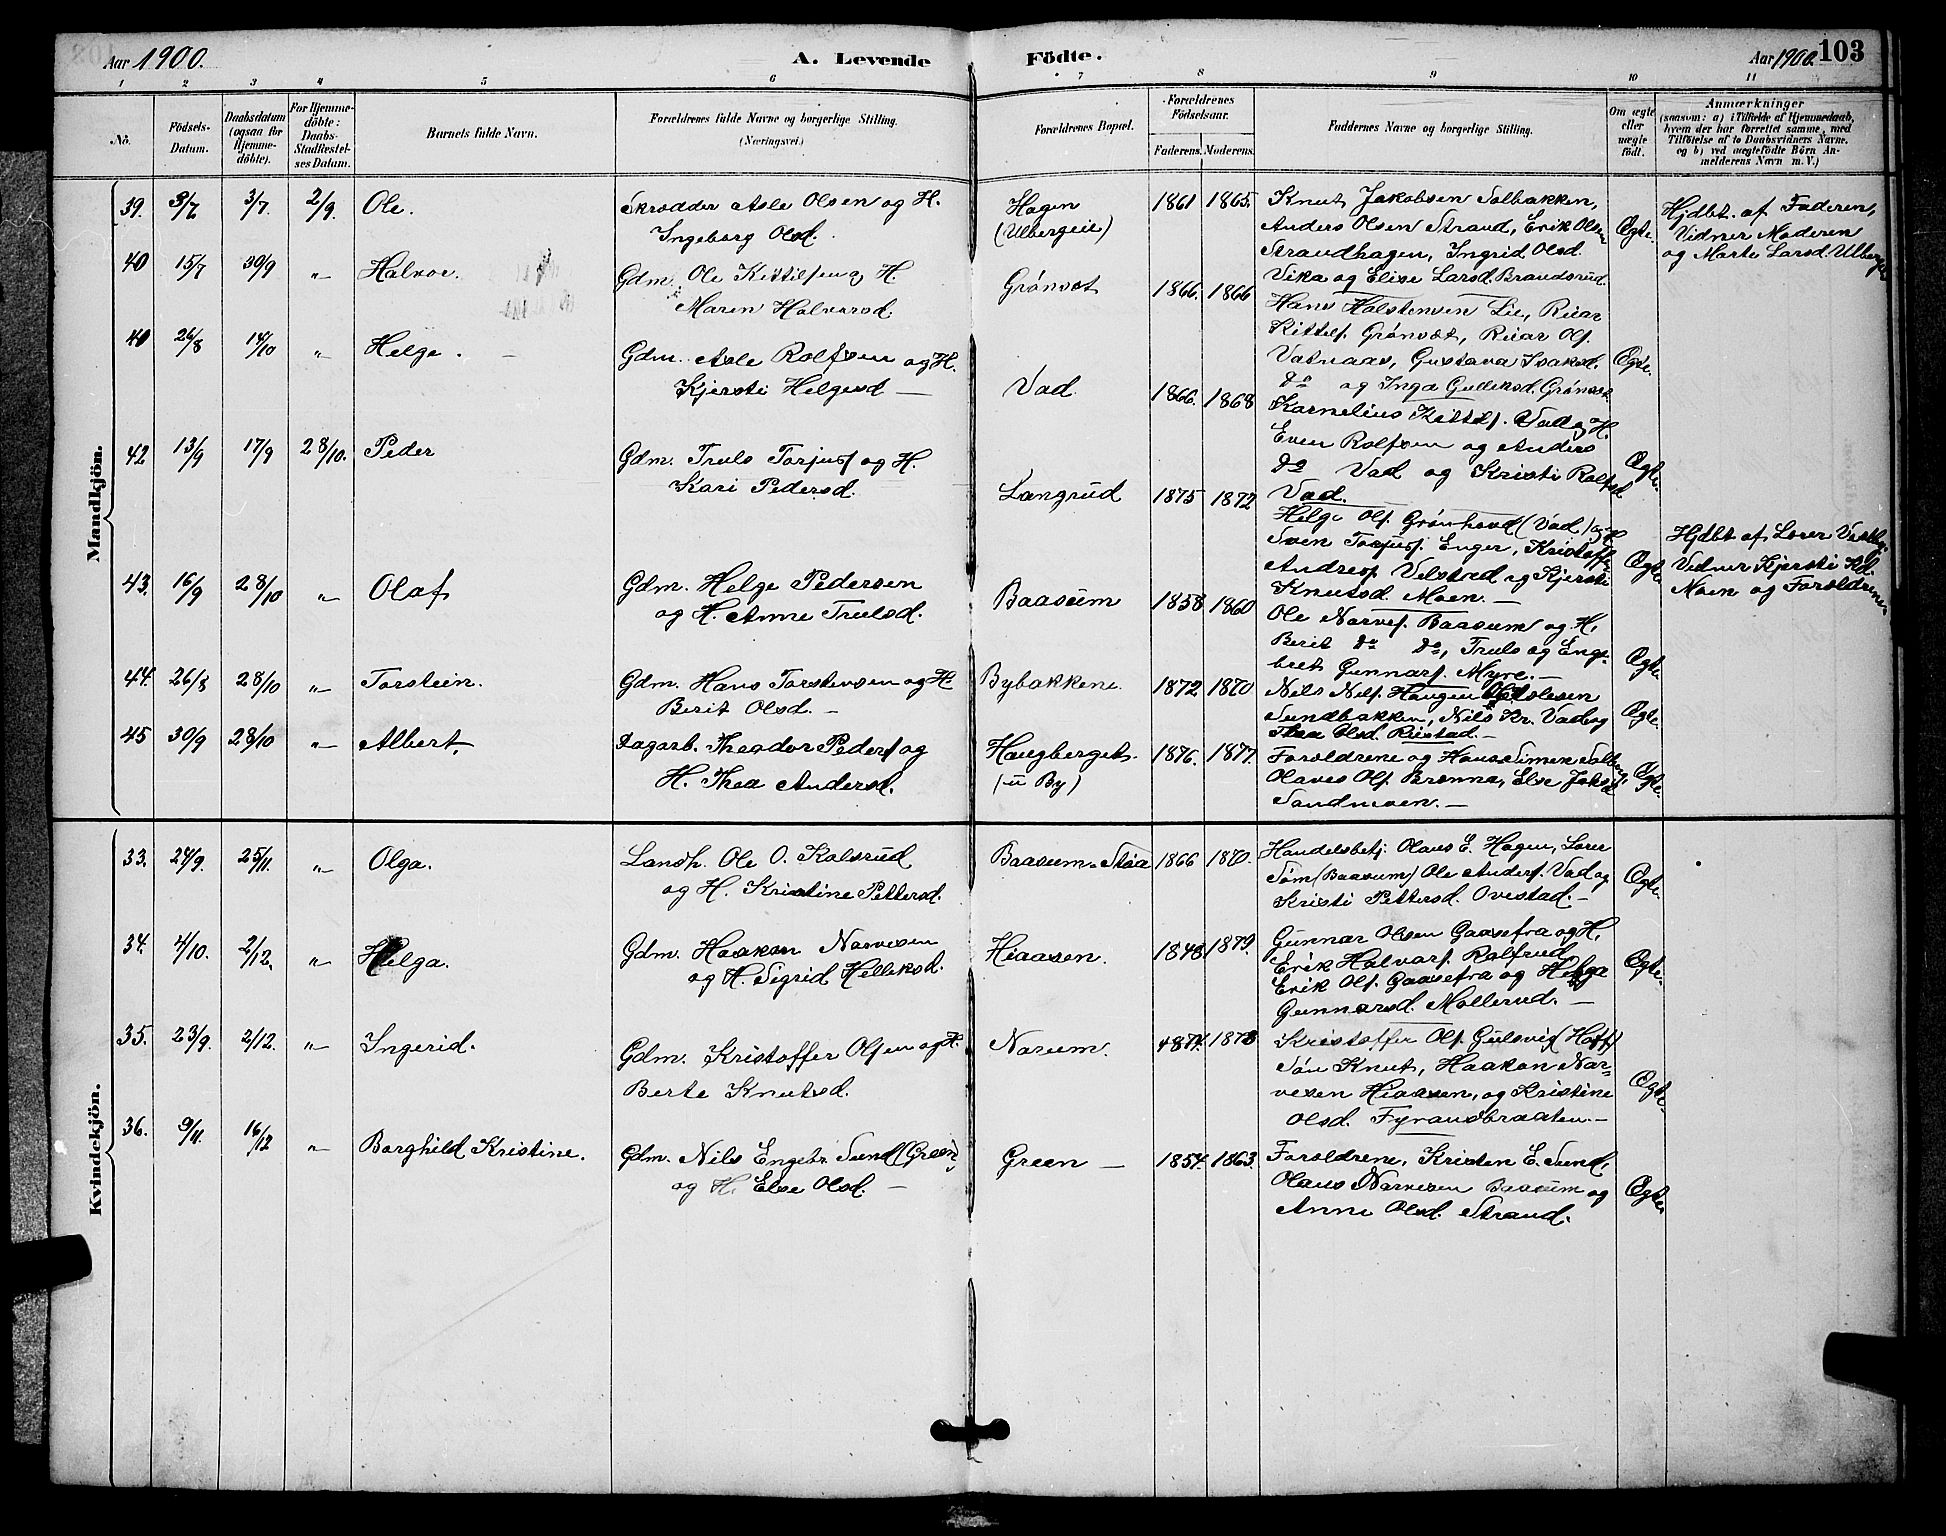 Aar 1900.
A. Levende
Födte.
Aar 1900. 103
1 2 3 4 5 6 7 8 9 10 11
No.
Födsels-
Datum.
Daabsdatum
(ogsaa for
Hjemme-
döbte).
For Hjemme-
döbte:
Daabs-
Stadfæstel-
ses Datum.
Barnets fulde Navn.
Forældrenes fulde Navne og borgerlige Stilling.
(Næringsvei.)
Forældrenes Bopæl.
Forældrenes
Födselsaar.
Faderens. Moderens.
Faddernes Navne og borgerlige Stilling.
Om ægte
eller
uægte
födt.
Anmærkninger
(saasom: a) i Tilfælde af Hjemmedaab,
hvem der har forrettet samme, med
Tilföielse af to Daabsvidners Navne,
og b) ved uægtefödte Börn An-
melderens Navn m. V.)
Mandkjön.
39. 3/7 3/7. 2/9. Ole.
Skrædder Asle Olsen og H.
Ingeborg Olsd.
Hagen
(Ulbergeie)
1861 1865.
Knut Jakobsen Solbakken,
Anders Olsen Strand, Erik Olsen
Strandhagen, Ingrid Olsd.
Vika og Elise Larsd. Brandsrud.
Ægte.
Hjdbt. af Faderen,
Vidner Moderen
og Marte Larsd. Ulberg
40 15/7 30/9 " Halvor.
Gdm. Ole Kittilsen og H.
Maren Halvorsd.
Grønvot
1866. 1866
Hans Halstensen Lie, Reiar
Kittelf. Grønvot, Reiar Olf.
Vatnaas, Gustava Isaksd.
do og Inga Gulleksd. Grønvot
Ægte.
40 26/8 14/10 " Helge.
Gdm. Asle Rolfsen og H.
Kjersti Helgesd —
Vad.
1866. 1868
Karnelius Kittelf. Vall og H.
Even Rolfsen og Anders
do Vad og Kristi Rolfsd
Vad.
Ægte.
42 13/9 17/9 28/10. Peder
Gdm. Truls Torjusf og H.
Kari Pedersd.
Langrud
1875 1872
Helge Olf. Grønhovd (Vad) og H
Sven Torjusf. Enger, Kristoffer
Andresf. Velstad og Kjersti
Knutsd. Moen. —
Ægte
Hjdbt af Lærer
Vidner Kjersti Kd.
Moen og Forældrene
43. 16/9 28/10 " Olaf
Gdm. Helge Pedersen
og H. Anne Trulsd.
Baasum
1858 1860
Ole Narvef. Baasum og H.
Berit do do, Truls og Enge-
bret Gunnarf. Myre. —
Ægte
44. 26/8 28/10 " Torstein.
Gdm. Hans Torstensen og H.
Berit Olsd. —
Bybakkene.
1872 1870
Nils Nilf. Haugen
Sundbakken, Nils Kr. Vad og
Thea Olsd. Rustad. —
Ægte.
45 30/9 28/10 " Albert.
Dagarb. Theodor Pedersf og
H. Thea Andersd.
Haugberget.
(u By)
1876. 1877.
Forældrene og Hans Simens. Solberg,
Olaves Olf. Brenna, Else Jaksd
Sandmoen. —
Ægte.
Kvindekjön.
33. 24/9. 25/11. " Olga.
Landh. Ole O. Kolsrud
og H. Kristine Pettersd.
Baasum-Støa
1866 1870.
Handelsbetj. Olaus E. Hagen, Lærer
Søm (Baasum) Ole Andersf. Vad og
Kristi Pettersd. Ovestad. —
Ægte.
34. 4/10. 2/12. " Helga.
Gdm. Haakon Narvesen
og H. Sigrid Helleksd.
Hiaasen.
1848 1879.
Gunnar Olsen Gaasefra og H.
Erik Halvorf. Rolfrud
Erik Olf. Gaasefra og Helga
Gunnarsd. Møllerud. —
Ægte.
35. 23/9. 2/12. " Ingerid.
Gdm. Kristoffer Olsen og H.
Berte Knutsd.
Narum.
1874. 1873
Kristoffer Olf. Gulsvig (Hoff)
Søn Knut, Haakon Nar-
vesen Hiaasen, og Kristine
Olsd. Fyransbraaten. —
Ægte.
36. 9/11. 16/12 " Borghild Kristine.
Gdm. Nils Engebr. Sund (Green)
og H. Else Olsd. —
Green —
1857. 1863.
Forældrene, Kristen E. Sund,
Olaus Narvesen Baasum og
Anne Olsd. Strand.
Ægte.